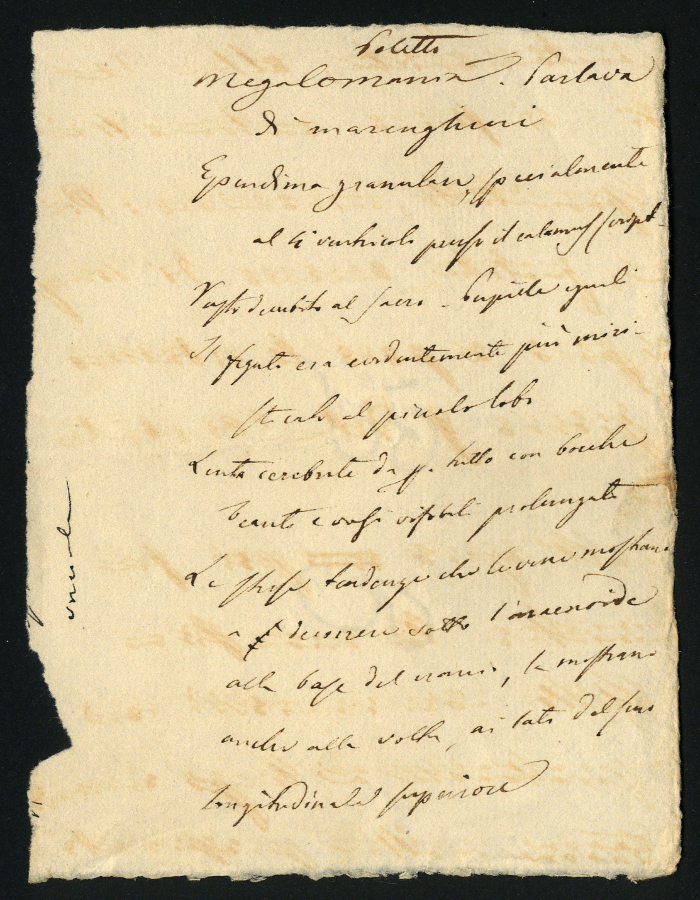 Poletto
Megalomania. Parlava
di marenghini
Ependima granulare, specialmente
al 4° ventricolo presso il calamus script.
Vasto decubito al sacro - Pupille eguali
Il fegato era evidentemente più
al piccolo lobo
cerebrale da p. tutto con bocche
beanti e vasi visibili prolungati
Le stesse tendenze che le vene mostrano
a decorrere sotto l'aracnoide
alla base del cranio, la mostrano
anche alla volta, ai lati del seno
longitudinale superiore